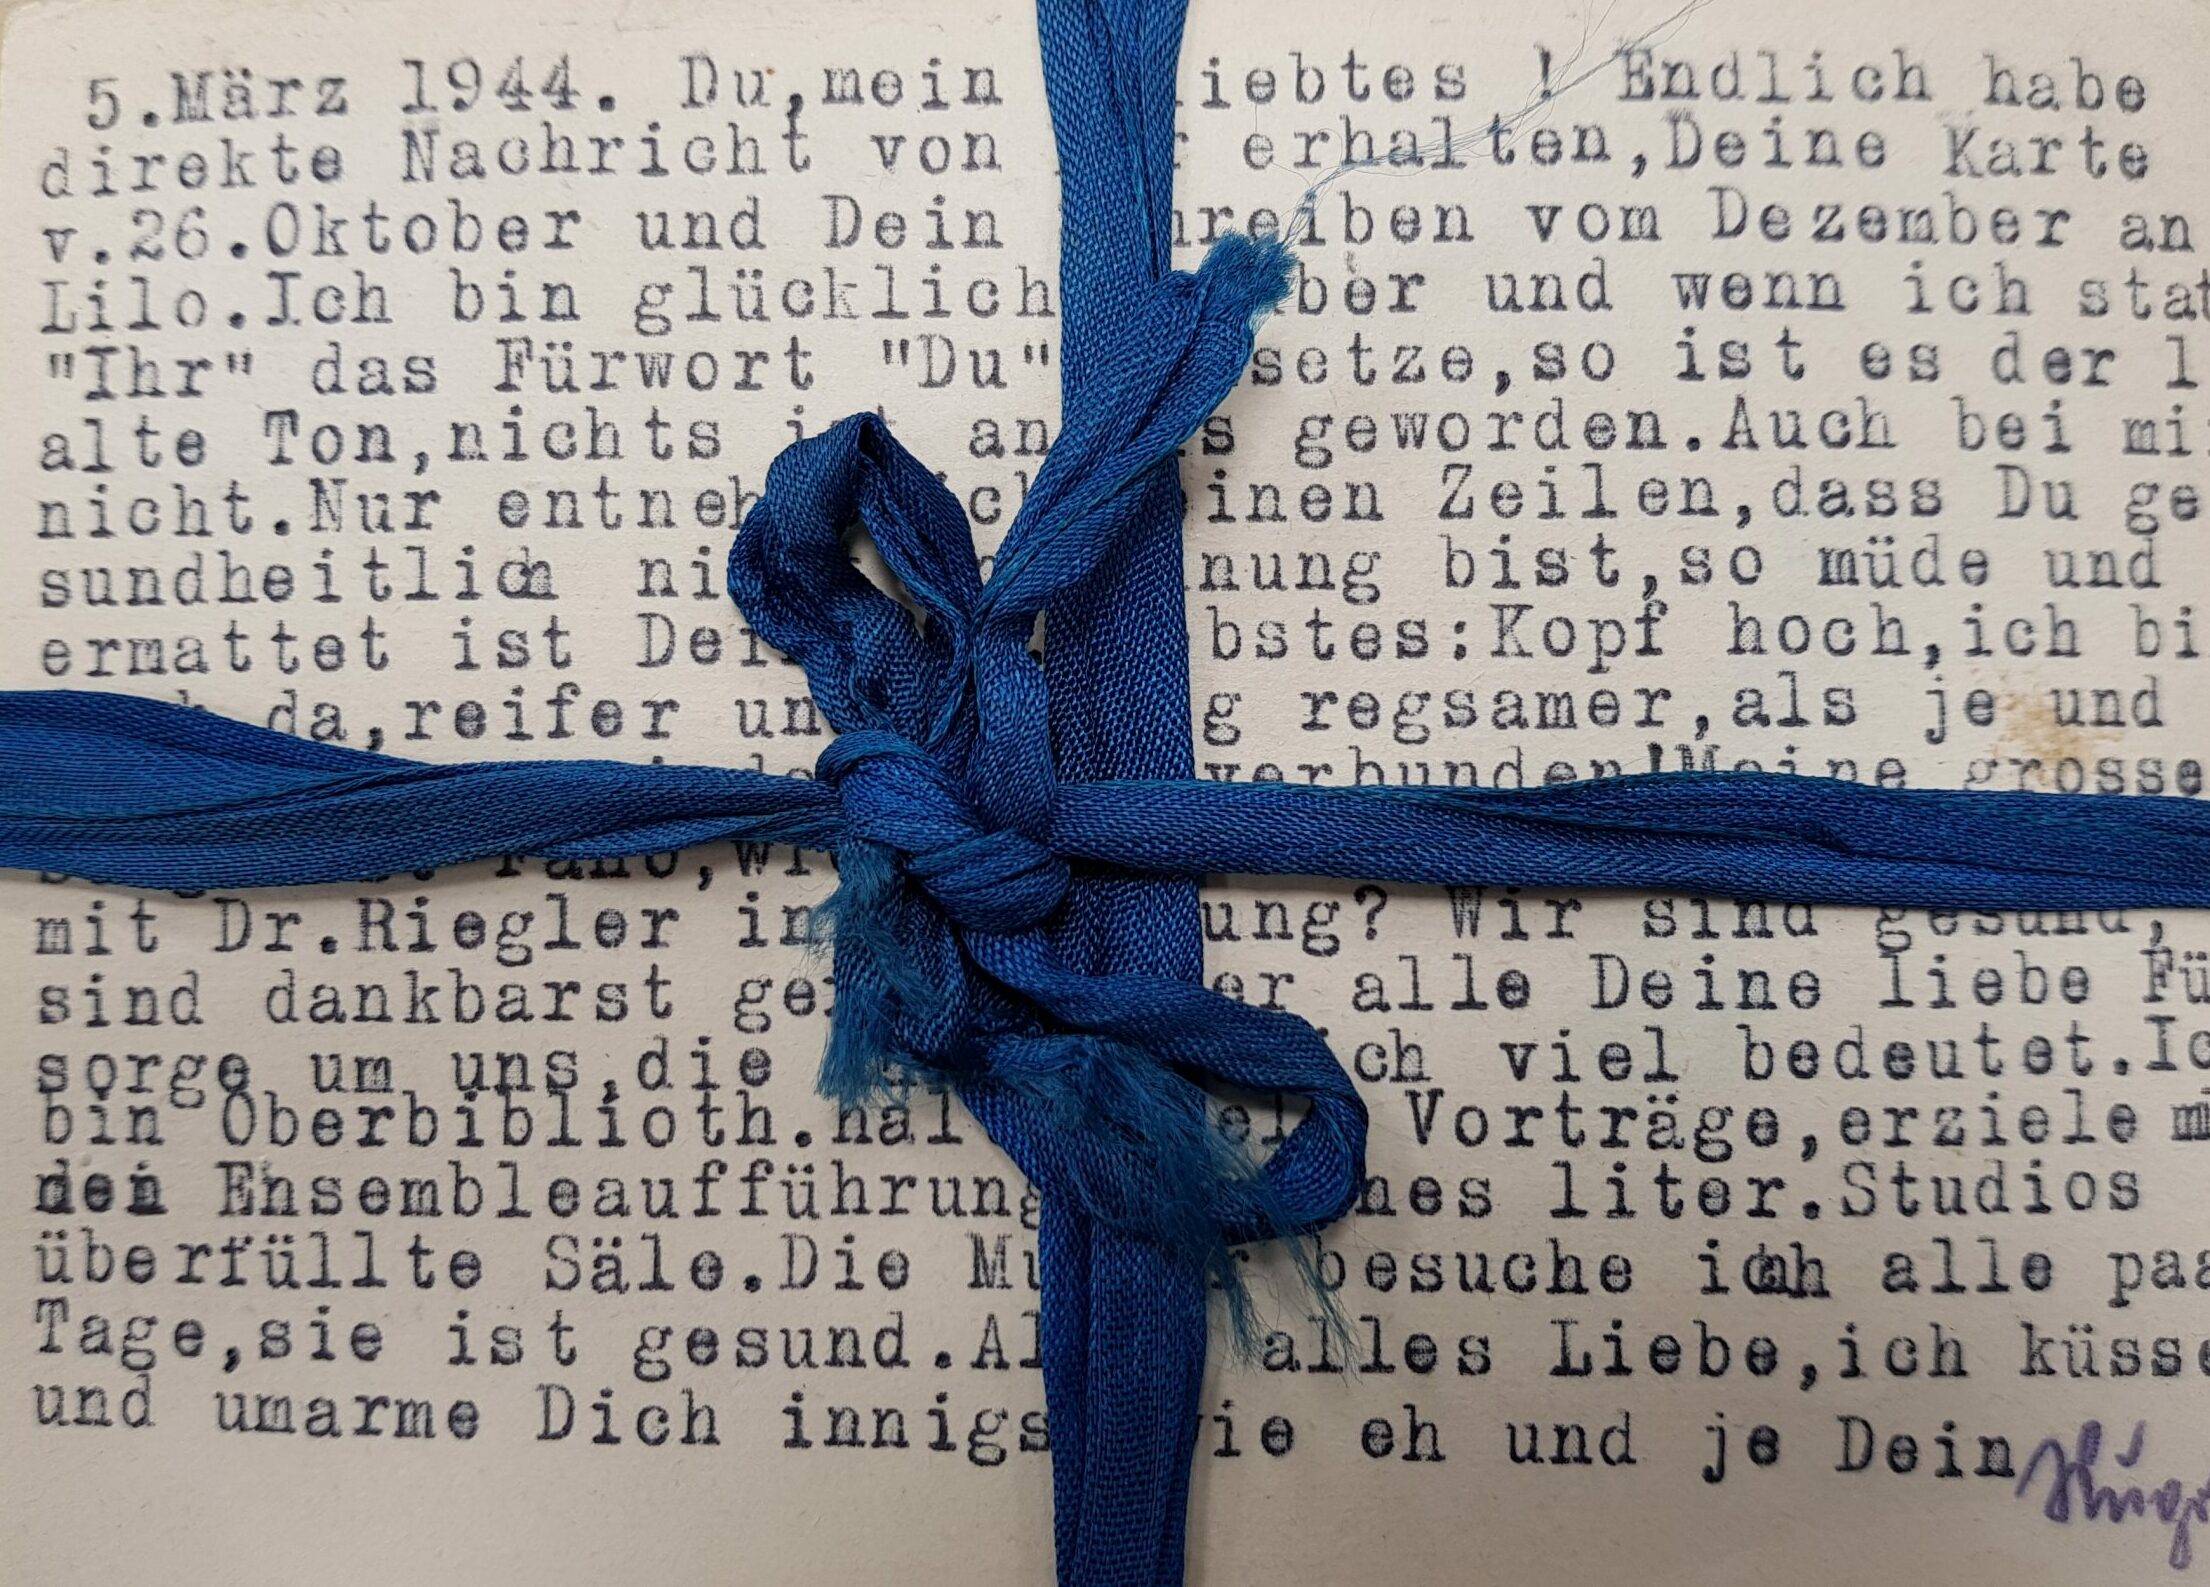 5.März 1944. Du,mein iebtes ! Endlich habe
direkte Nachricht von erhalten,Deine Karte
v.26.Oktober und Dein reiben vom Dezember an
Lilo.Ich bin glücklich ber und wenn ich stat
"Ihr" das Fürwort "Du" setze,so ist es der l
alte Ton,nichts an s geworden.Auch bei mi
nicht.Nur entneh ich einen Zeilen,dass Du ge
sundheitlich ni nung bist,so müde und
ermattet ist Dei bstes:Kopf hoch,ich bi
da,reifer un g regsamer,als je und
verbunden!Meine grosse
Fano,wi
mit Dr.Riegler in ung? Wir sind gesund,
sind dankbarst ge er alle Deine liebe Fü
sorge um uns,die ich viel bedeutet.Ic
bin Oberbiblioth.hal el Vorträge,erziele m
den Ensembleaufführung nes liter.Studios
überfüllte Säle.Die Mu r besuche ich alle paa
Tage,sie ist gesund.Al alles Liebe,ich küsse
und umarme Dich innigs wie eh und je Dein